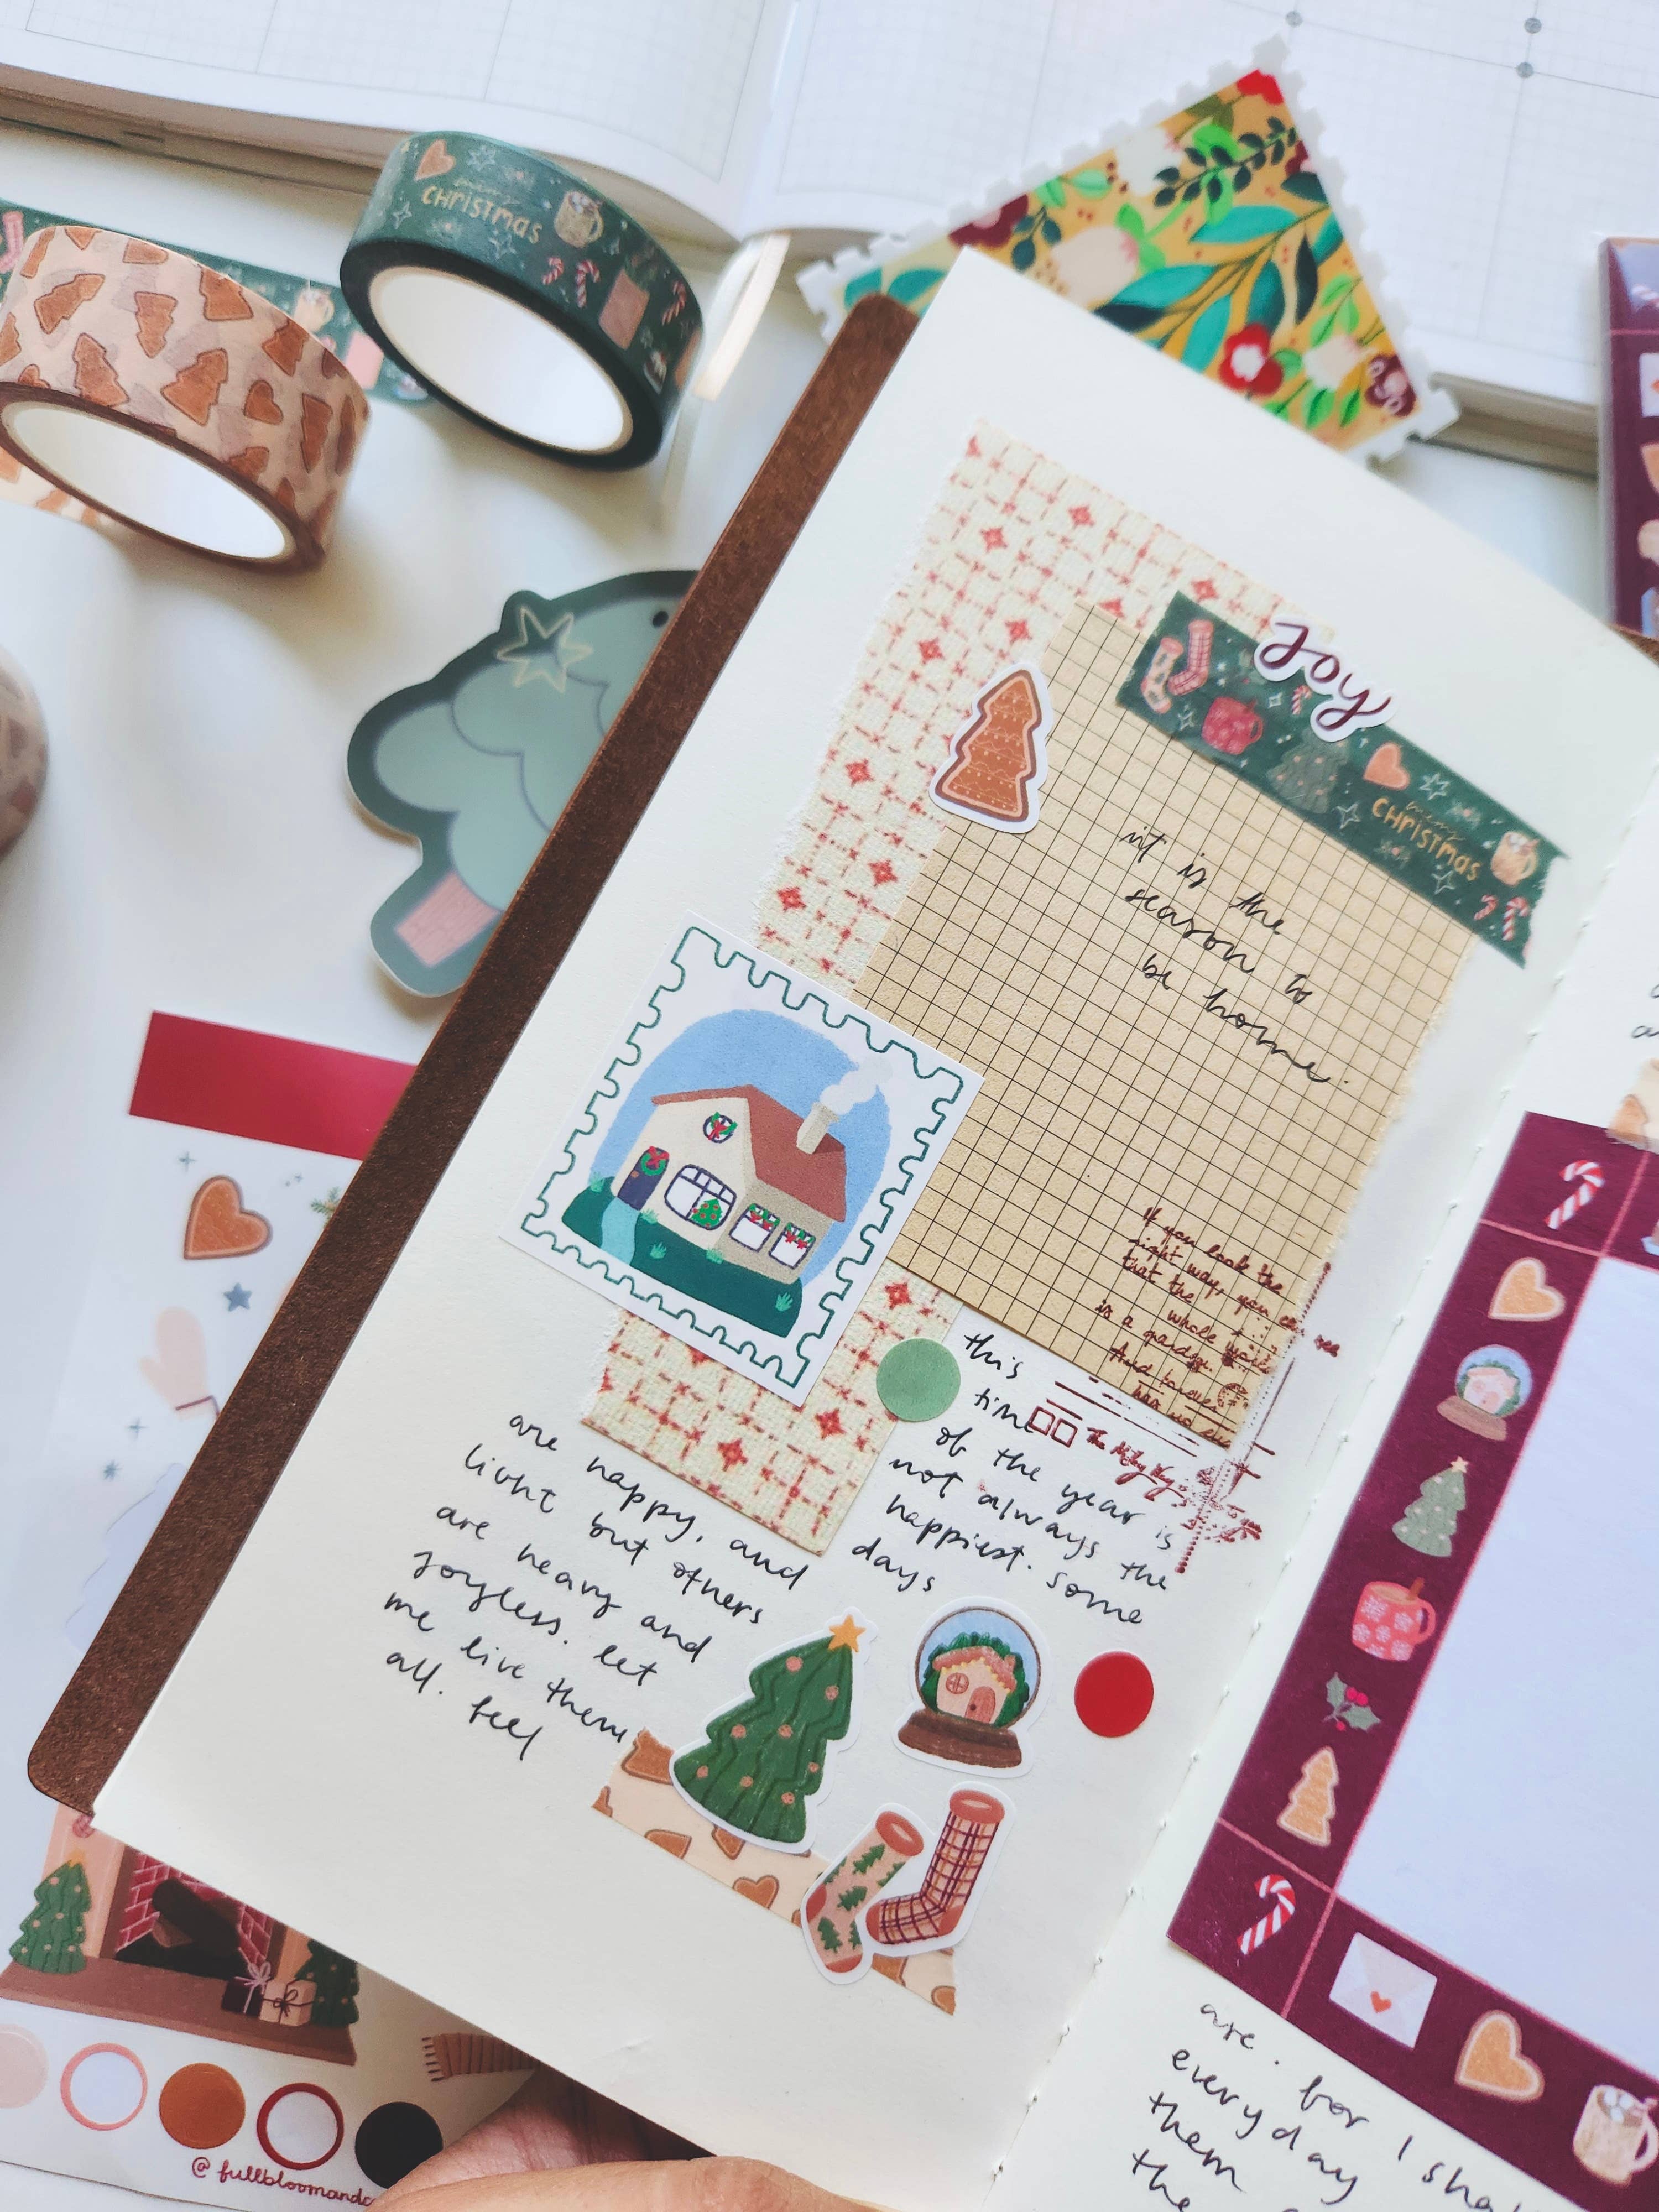 merry
CHRISTMAS
Joy
merry
CHRISTMAS
it is the
season to
be home.
If you look the
right way, you can see
that the whole world
is a garden.
The Milky Way
this
time
of the year is
not always the
happiest. some
days
are happy, and
light but others
are heavy and
joyless. let
me live them
all. feel
are. for I
everyday
them
the
@fullbloomandc